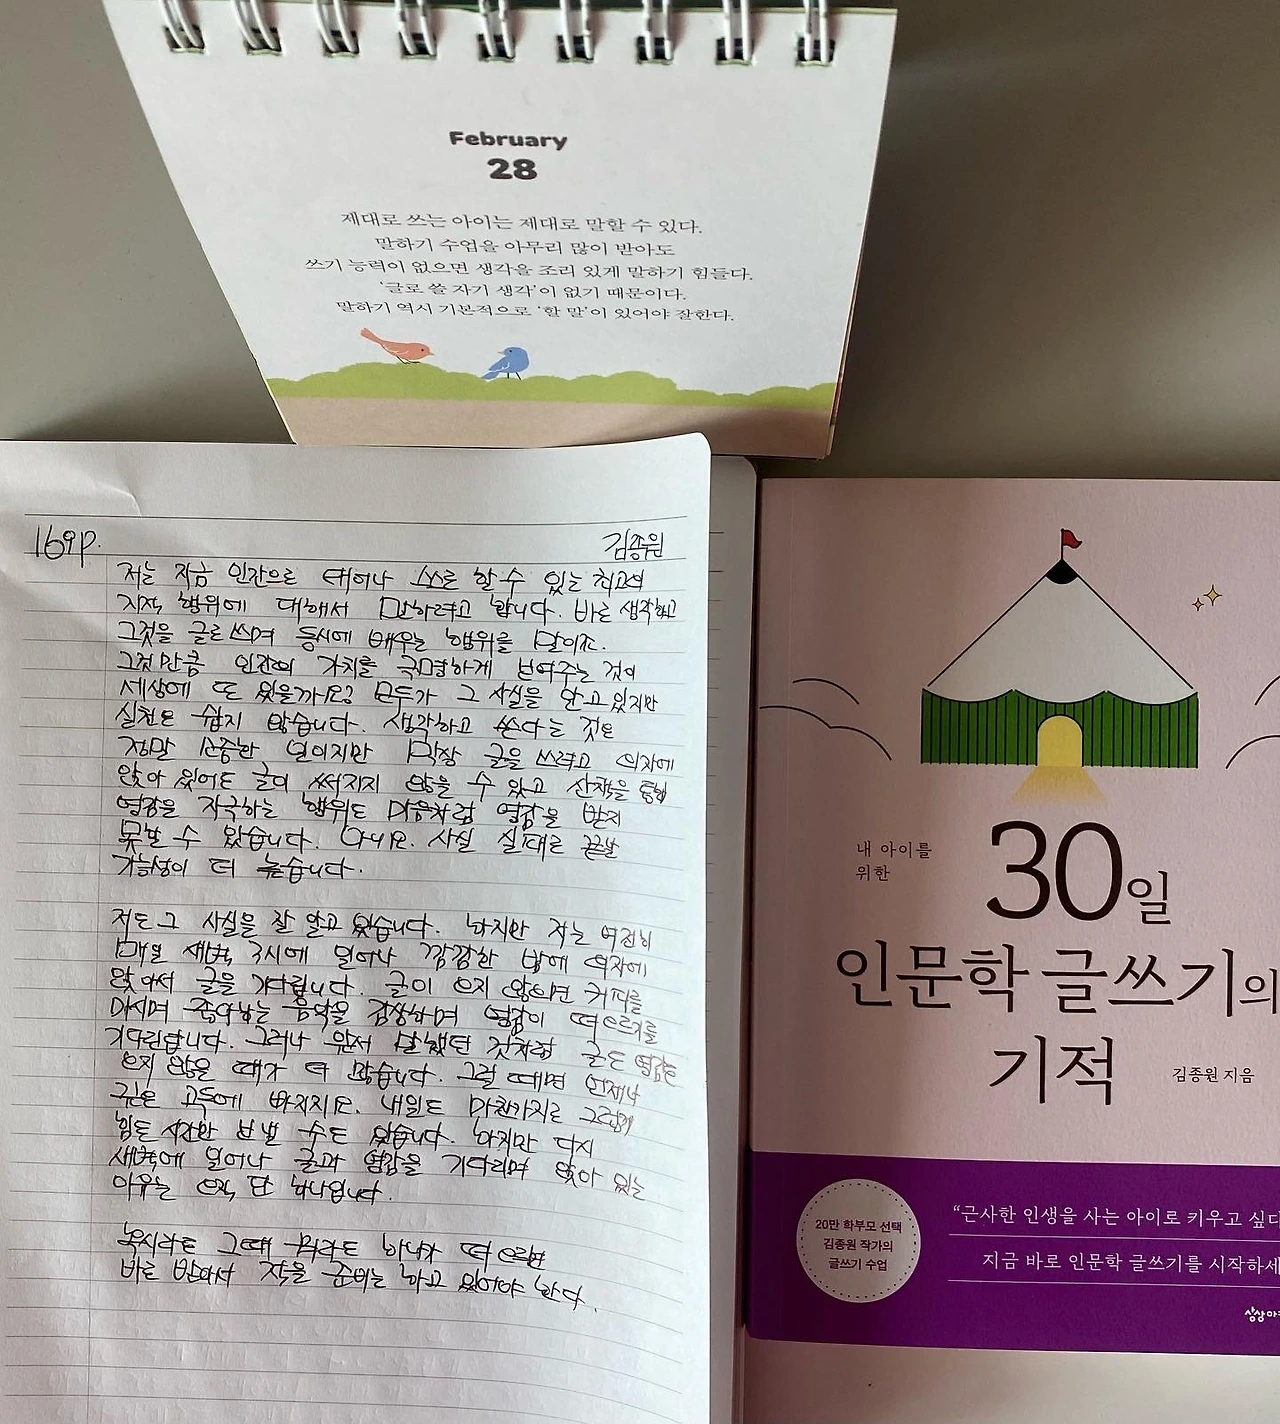 February
28
제대로 쓰는 아이는 제대로 말할 수 있다.
말하기 수업을 아무리 많이 받아도
쓰기 능력이 없으면 생각을 조리 있게 말하기 힘들다.
'글로 쓸 자기 생각'이 없기 때문이다.
말하기 역시 기본적으로 '할 말'이 있어야 잘한다.
169p.
김종원
저는 지금 인간으로 태어나 스스로 할 수 있는 최고의
지적 행위에 대해서 말하려고 합니다. 바로 생각하고
그것을 글로 쓰며 동시에 배우는 행위를 말이죠.
그것만큼 인간의 가치를 극명하게 보여주는 것이
세상에 또 있을까요? 모두가 그 사실을 알고 있지만
실천은 쉽지 않습니다. 생각하고 쓴다는 것은
정말 소중한 일이지만 막상 글을 쓰려고 의자에
앉아 있어도 글이 써지지 않을 수 있고 산책을 통해
영감을 자극하는 행위도 마음처럼 영감을 받지
못할 수 있습니다. 아니요. 사실 실패로 끝날
가능성이 더 높습니다.
저도 그 사실을 잘 알고 있습니다. 하지만 저는 여전히
매일 새벽 3시에 일어나 깜깜한 방에 의자에
앉아서 글을 기다립니다. 글이 오지 않으면 커피를
마시며 좋아하는 음악을 감상하며 영감이 떠오르기를
기다린답니다. 그러나 먼저 말했던 것처럼 글도 영감도
오지 않을 때가 더 많습니다. 그럴 때면 언제나
깊은 고독에 빠지지요. 내일도 마찬가지로 그렇게
힘든 시간만 보낼 수도 있습니다. 하지만 다시
새벽에 일어나 글과 영감을 기다리며 앉아 있는
이유는 오직, 단 하나입니다.
혹시라도 그때 뭐라도 하나가 떠오르면
바로 받아서 적을 준비는 하고 있어야 한다.
내 아이를
위한
30일
인문학 글쓰기의
기적
김종원 지음
20만 학부모 선택
김종원 작가의
글쓰기 수업
“근사한 인생을 사는 아이로 키우고 싶다
지금 바로 인문학 글쓰기를 시작하세